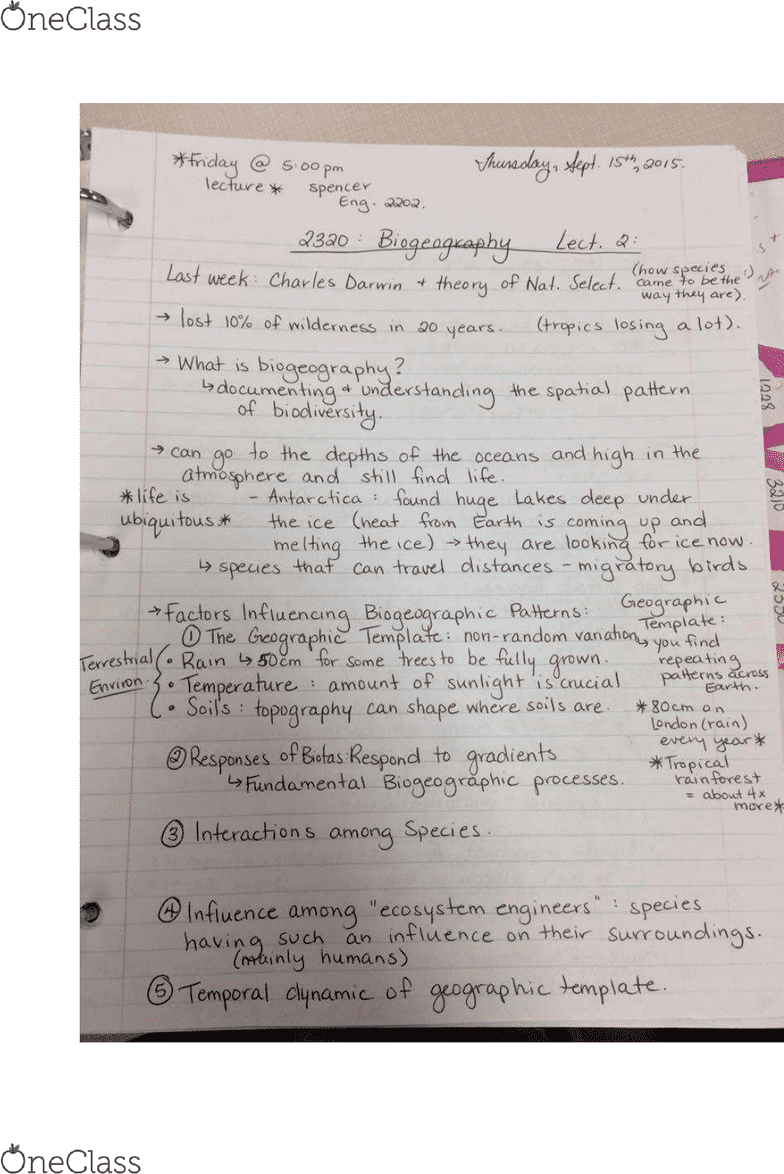 OneClass
*Friday @ 5:00 pm
lecture * spencer
Eng. 2202.
Thursday, Sept. 15th, 2015.
2320: Biogeography Lect. 2:
Last week: Charles Darwin + theory of Nat. Select. (how species
came to be the
way they are).
→ lost 10% of wilderness in 20 years. (tropics losing a lot).
→ What is biogeography?
↳ documenting + understanding the spatial pattern
of biodiversity.
→ can go to the depths of the oceans and high in the
atmosphere and still find life.
*life is
ubiquitous*
- Antarctica: found huge Lakes deep under
the ice (heat from Earth is coming up and
melting the ice) → they are looking for ice now.
↳ species that can travel distances - migratory birds
→ Factors Influencing Biogeographic Patterns:
① The Geographic Template: non-random variation
Terrestrial
Environ.
• Rain ↳ 50cm for some trees to be fully grown.
• Temperature: amount of sunlight is crucial
• Soils: topography can shape where soils are.
Geographic
Template:
↳ you find
repeating
patterns across
Earth.
*80cm on
London (rain)
every year*
*Tropical
rainforest
= about 4x
more*
② Responses of Biotas: Respond to gradients
↳ Fundamental Biogeographic processes.
③ Interactions among Species.
④ Influence among "ecosystem engineers": species
having such an influence on their surroundings.
(mainly humans)
⑤ Temporal dynamic of geographic template.
1228
3210
OneClass